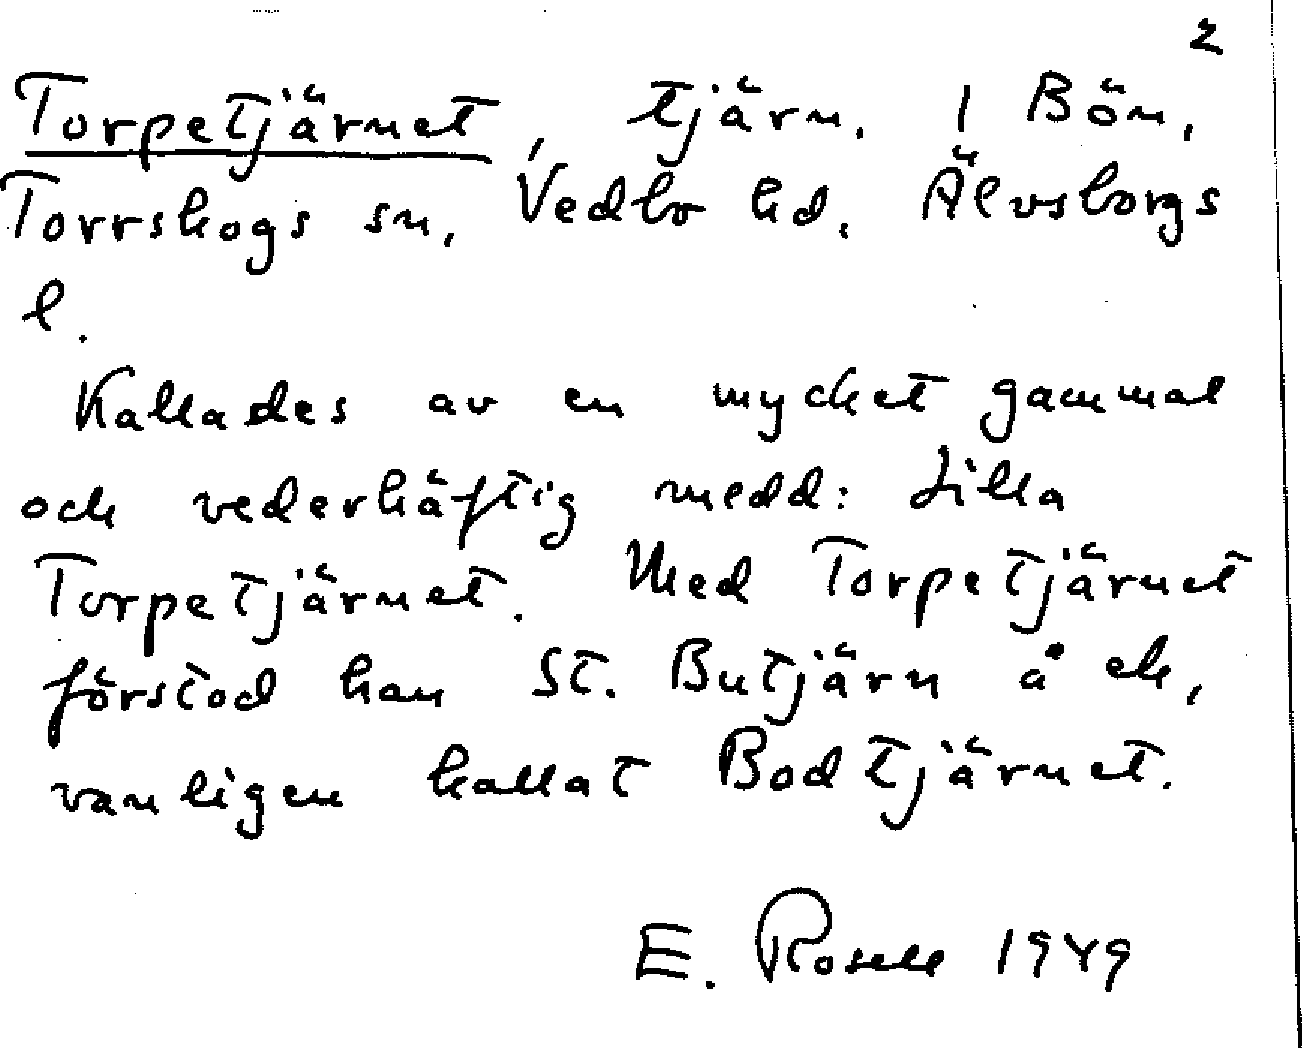 2
Torpetjärnet, tjärn. I Bön,
Torrskogs sn, Vedbo hd. Älvsborgs
l.
Kallades av en mycket gammal
och vederhäftig medd: Lilla
Torpetjärnet. Med Torpetjärnet
förstod han St. Butjärn å ek,
vanligen kallat Bodtjärnet.
E. Rosell 1949